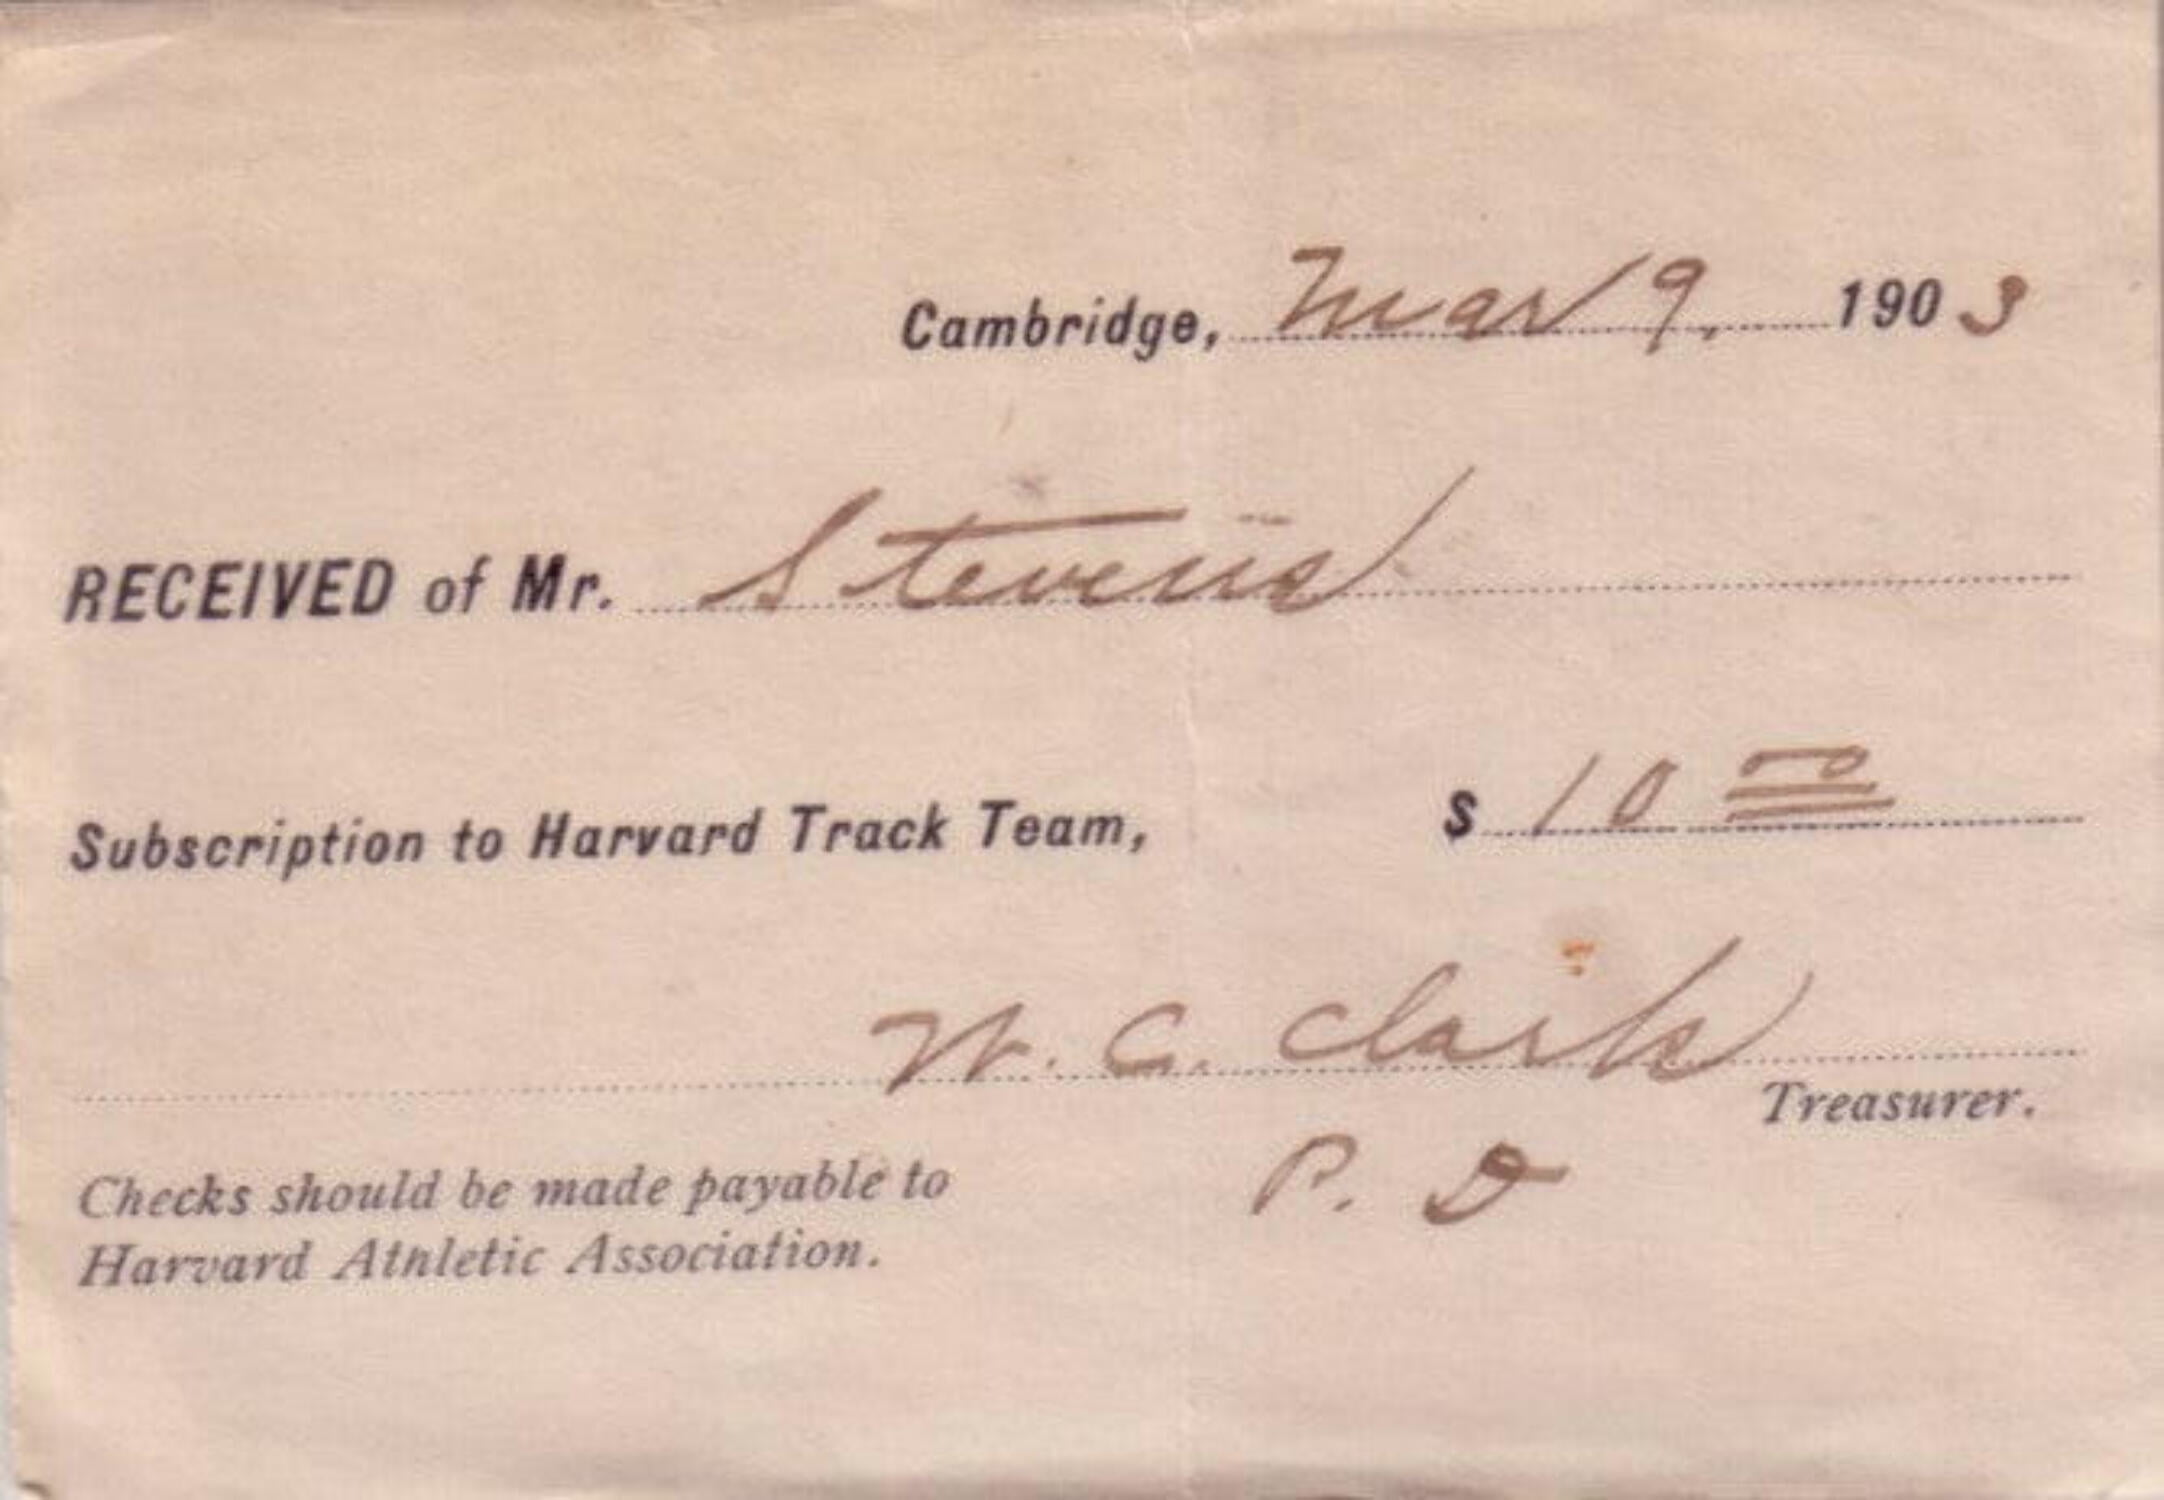 Cambridge, Mar 9, 1903
RECEIVED of Mr. Stevens
Subscription to Harvard Track Team, $ 10 00
W. C. Clark
Treasurer.
P. D
Checks should be made payable to
Harvard Athletic Association.